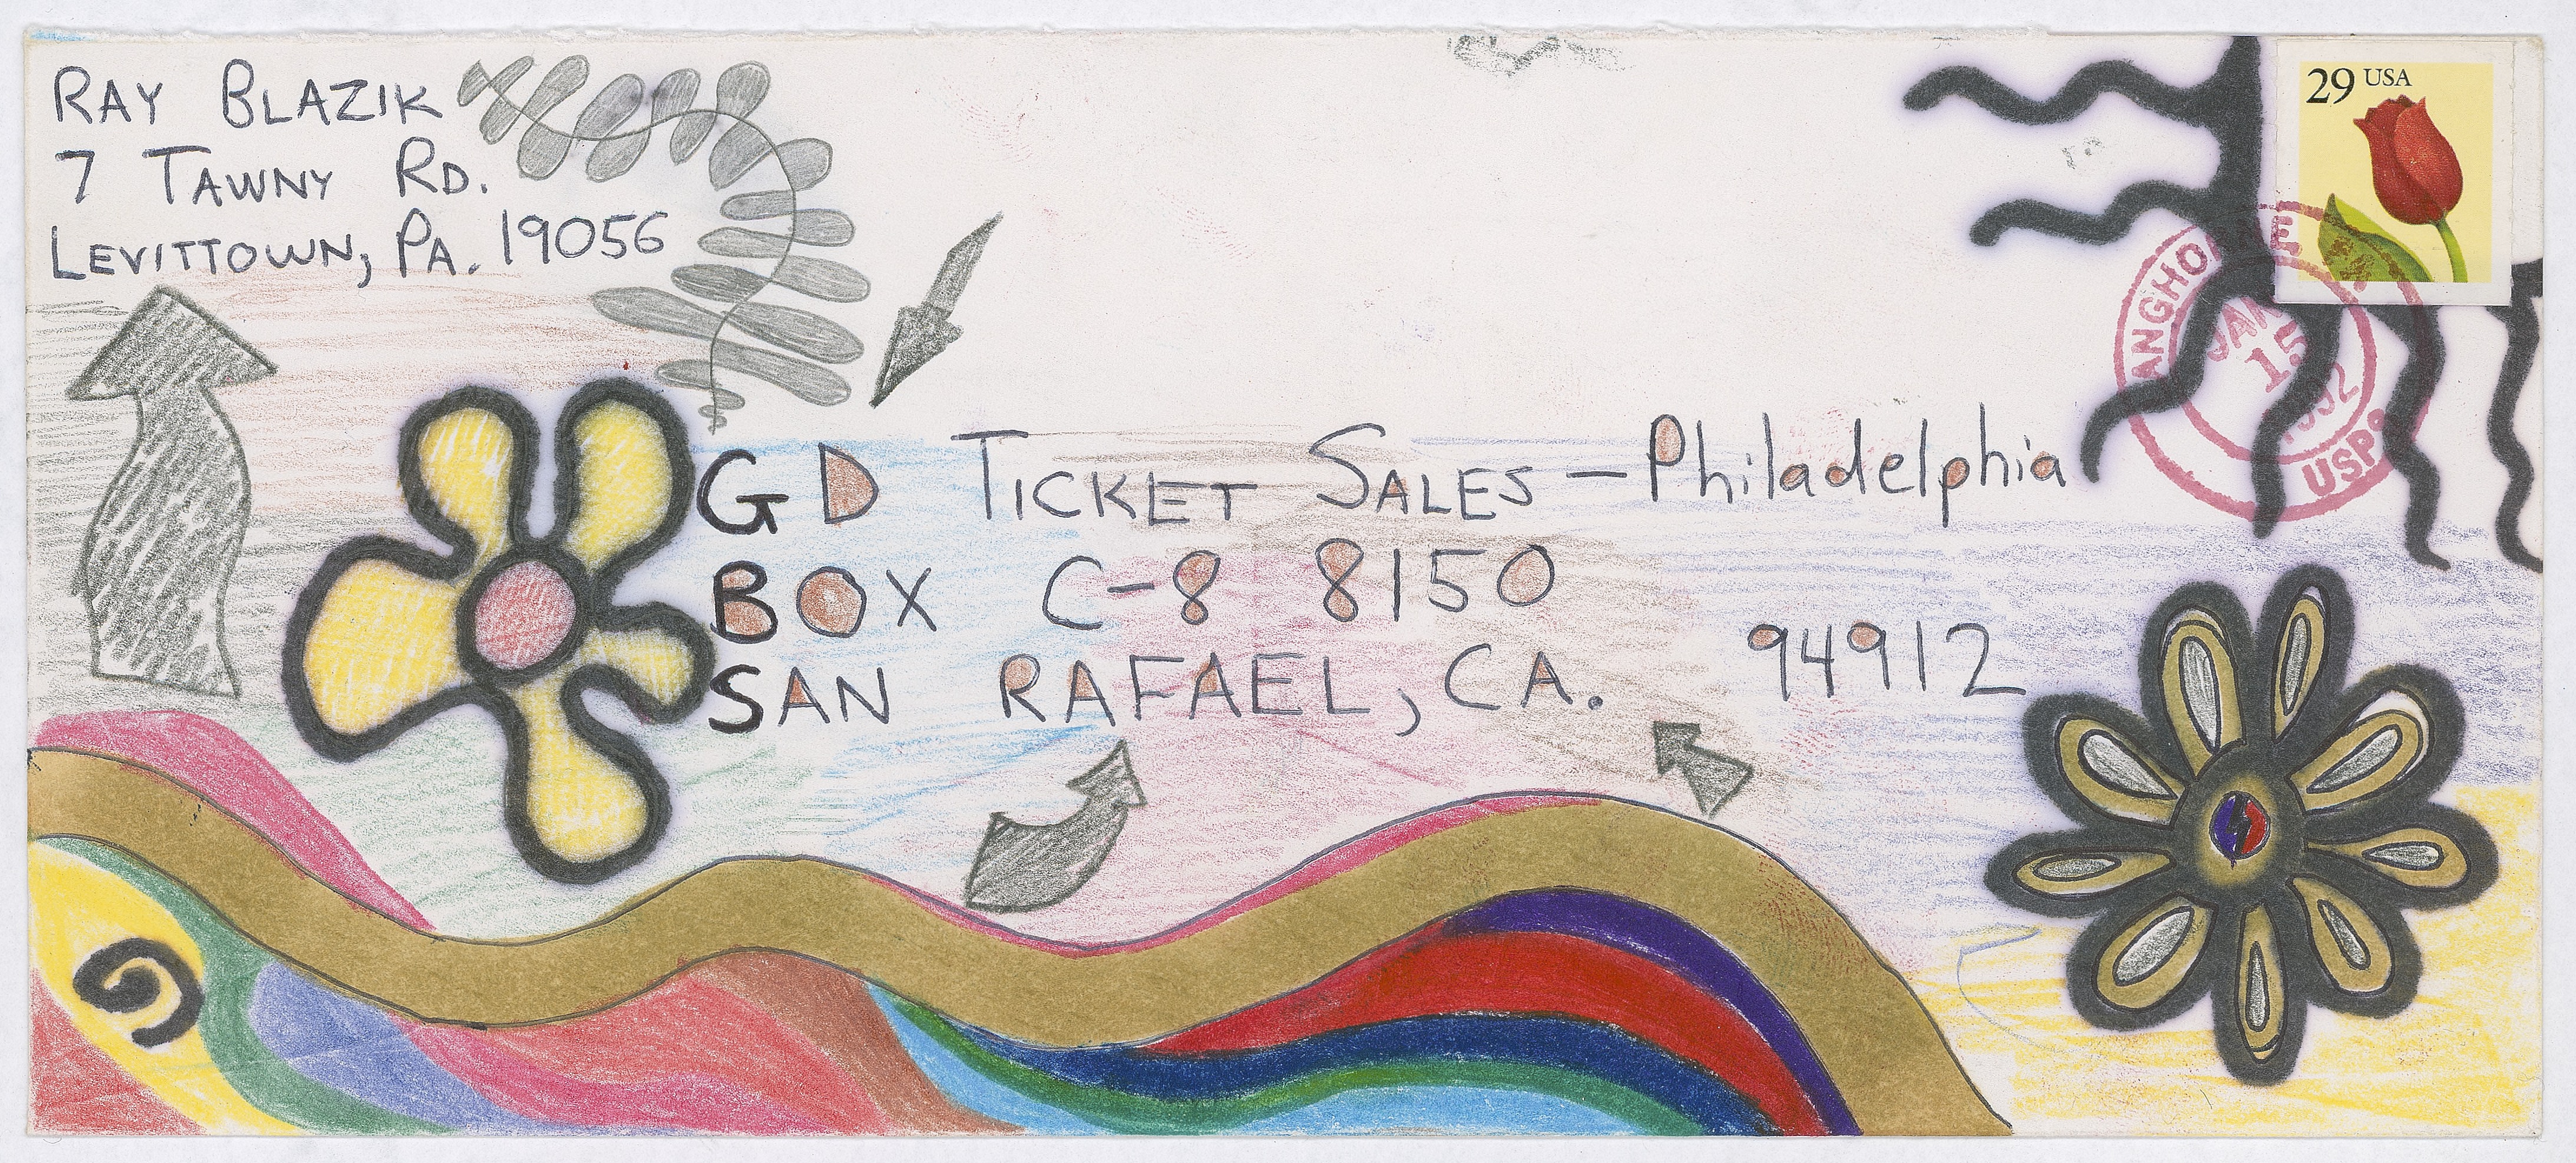 RAY BLAZIK
7 TAWNY RD.
LEVITTOWN, PA. 19056
29 USA
JAN
15
1992
USPS
GD TICKET SALES - Philadelphia
BOX C-8 8150
SAN RAFAEL, CA. 94912